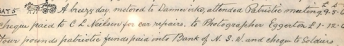 SAT 5 A busy day motored to Dannevirke, attended Patriotic meeting
cheque paid to C. L. Neilsen for car repairs, to Photographer Eggerton £1-12-
four pounds patriotic funds paid into Bank of N.S.W. and cheque to Soldiers